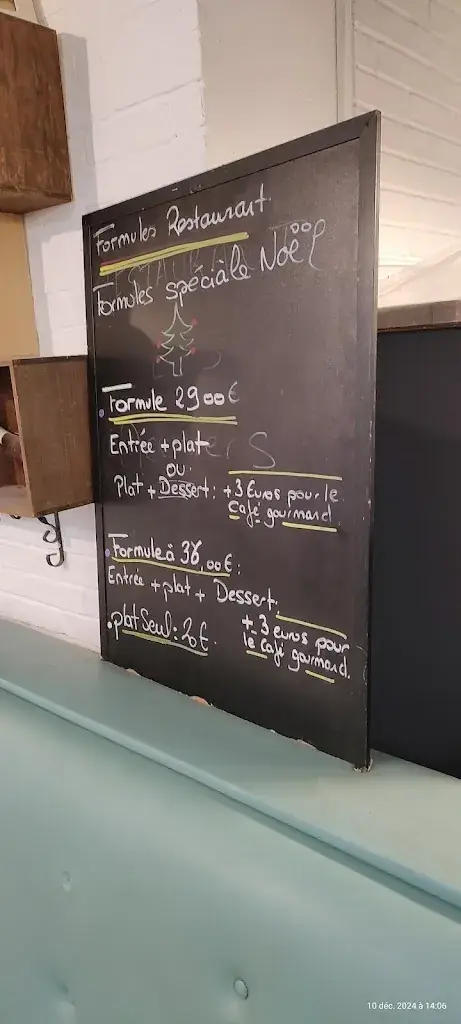 Formules Restaurant
Formules spéciàle Noël
Formule 29 00€
Entrée + plat
ou
Plat + Dessert: + 3 Euros pour le
café gourmand.
Formule à 38,00€:
Entrée + plat + Dessert:
+ 3 euros pour
le café gourmand.
• plat Seul: 20€.
10 déc. 2024 à 14:06